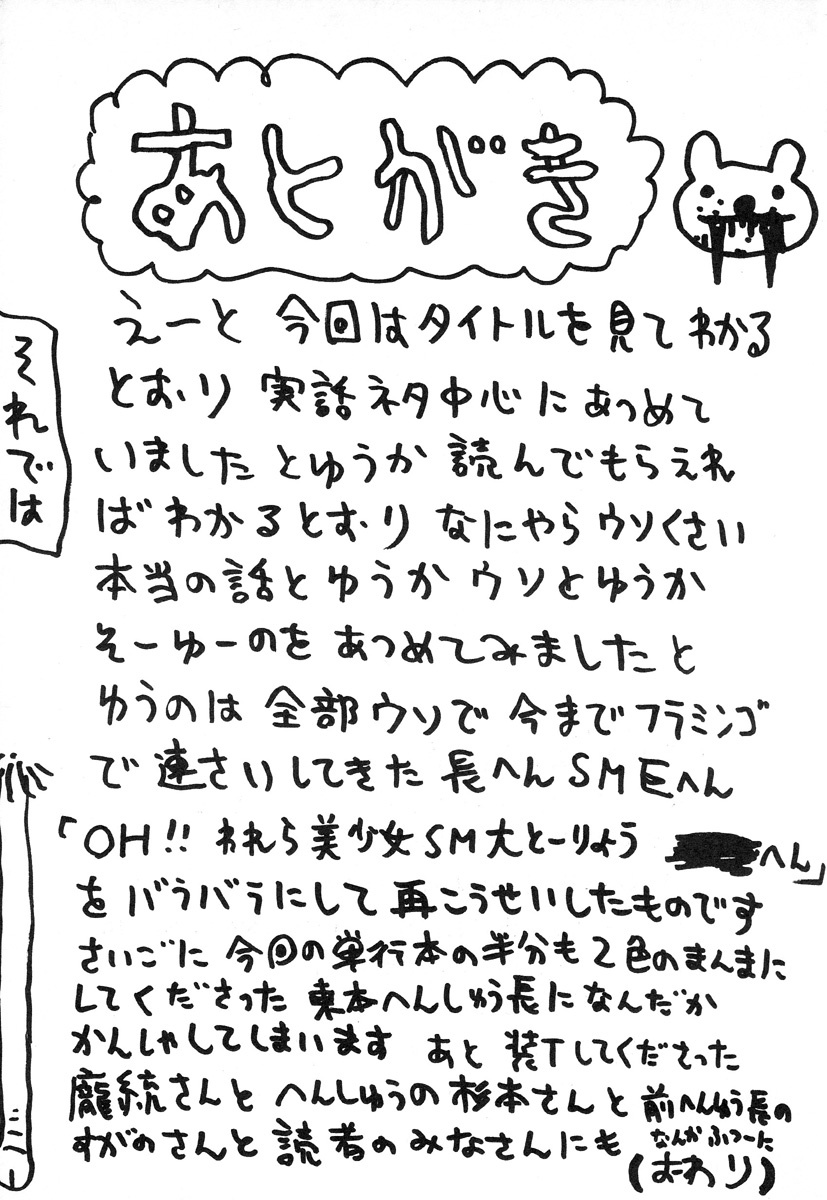 あとがき
えーと 今回はタイトルを見てわかる
とおり 実話ネタ中心にあつめて
いました とゆうか 読んでもらえれ
ば わかるとおり なにやらウソくさい
本当の話とゆうか ウソとゆうか
そーゆーのを あつめてみましたと
ゆうのは 全部ウソで 今までフラミンゴ
で 連さいしてきた 長へんSMEへん
「OH!! われら美少女SM大とーりょう へん」
を バラバラにして 再こうせいしたものです
さいごに 今回の単行本の半分も2色のまんまに
してくださった 東本へんしゅう長になんだか
かんしゃしてしまいます あと 装Tしてくださった
龐統さんと へんしゅうの杉本さんと 前へんしゅう長の
すがのさんと 読者のみなさんにも なんかふつーに
(おわり)
それでは